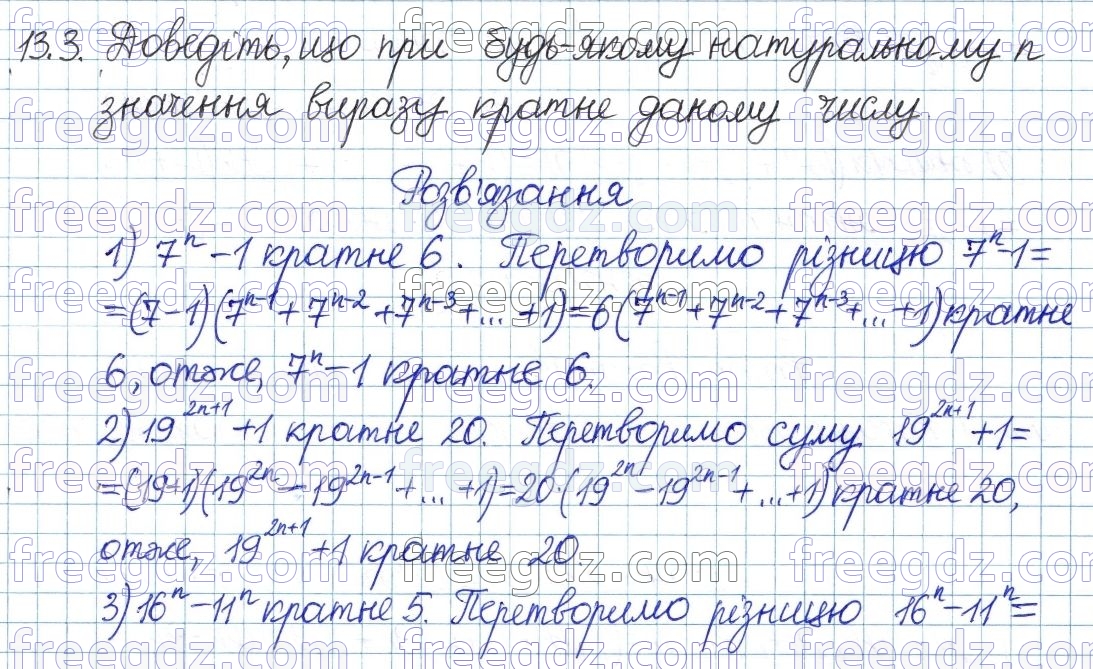 13.3. Доведіть, що при будь-якому натуральному n
значення виразу кратне даному числу
Розв'язання
1) 7ⁿ - 1 кратне 6. Перетворимо різницю 7ⁿ-1=
=(7-1)(7ⁿ⁻¹+7ⁿ⁻²+7ⁿ⁻³+...+1)=6(7ⁿ⁻¹+7ⁿ⁻²+7ⁿ⁻³+...+1) кратне
6, отже, 7ⁿ-1 кратне 6.
2) 19²ⁿ⁺¹+1 кратне 20. Перетворимо суму 19²ⁿ⁺¹+1=
=(19+1)(19²ⁿ-19²ⁿ⁻¹+...+1)=20·(19²ⁿ-19²ⁿ⁻¹+...+1) кратне 20,
отже, 19²ⁿ⁺¹+1 кратне 20.
3) 16ⁿ-11ⁿ кратне 5. Перетворимо різницю 16ⁿ-11ⁿ=
freegdz.com